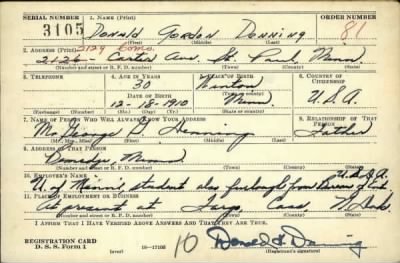 SERIAL NUMBER 1. NAME (Print) ORDER NUMBER
3105 DONALD GORDON DENNING 81
(First) (Middle) (Last)
2. ADDRESS (Print) 2124 Como
2126 - Carter Ave. St. Paul Minn.
(Number and street or R. F. D. number) (Town) (County) (State)
3. TELEPHONE 4. AGE IN YEARS 5. PLACE OF BIRTH 6. COUNTRY OF CITIZENSHIP
30
DATE OF BIRTH (Town or county)
12-18-1910 Minn. U.S.A.
(Exchange) (Number) (Mo.) (Day) (Yr.) (State or country)
7. NAME OF PERSON WHO WILL ALWAYS KNOW YOUR ADDRESS 8. RELATIONSHIP OF THAT PERSON
Mr. George Denning Father
(Mr., Mrs., Miss) (First) (Middle) (Last)
9. ADDRESS OF THAT PERSON
Bemidji, Minn
(Number and street or R. F. D. number) (Town) (County) (State)
10. EMPLOYER'S NAME U.S.D.A.
U. of Minn., student also furlough from Bureau of Ent.
11. PLACE OF EMPLOYMENT OR BUSINESS
At present at Fargo, Cass, N. Dak.
(Number and street or R. F. D. number) (Town) (County) (State)
I AFFIRM THAT I HAVE VERIFIED ABOVE ANSWERS AND THAT THEY ARE TRUE.
REGISTRATION CARD
D. S. S. Form 1 (over) 16-17105 10 Donald G. Denning
(Registrant's signature)